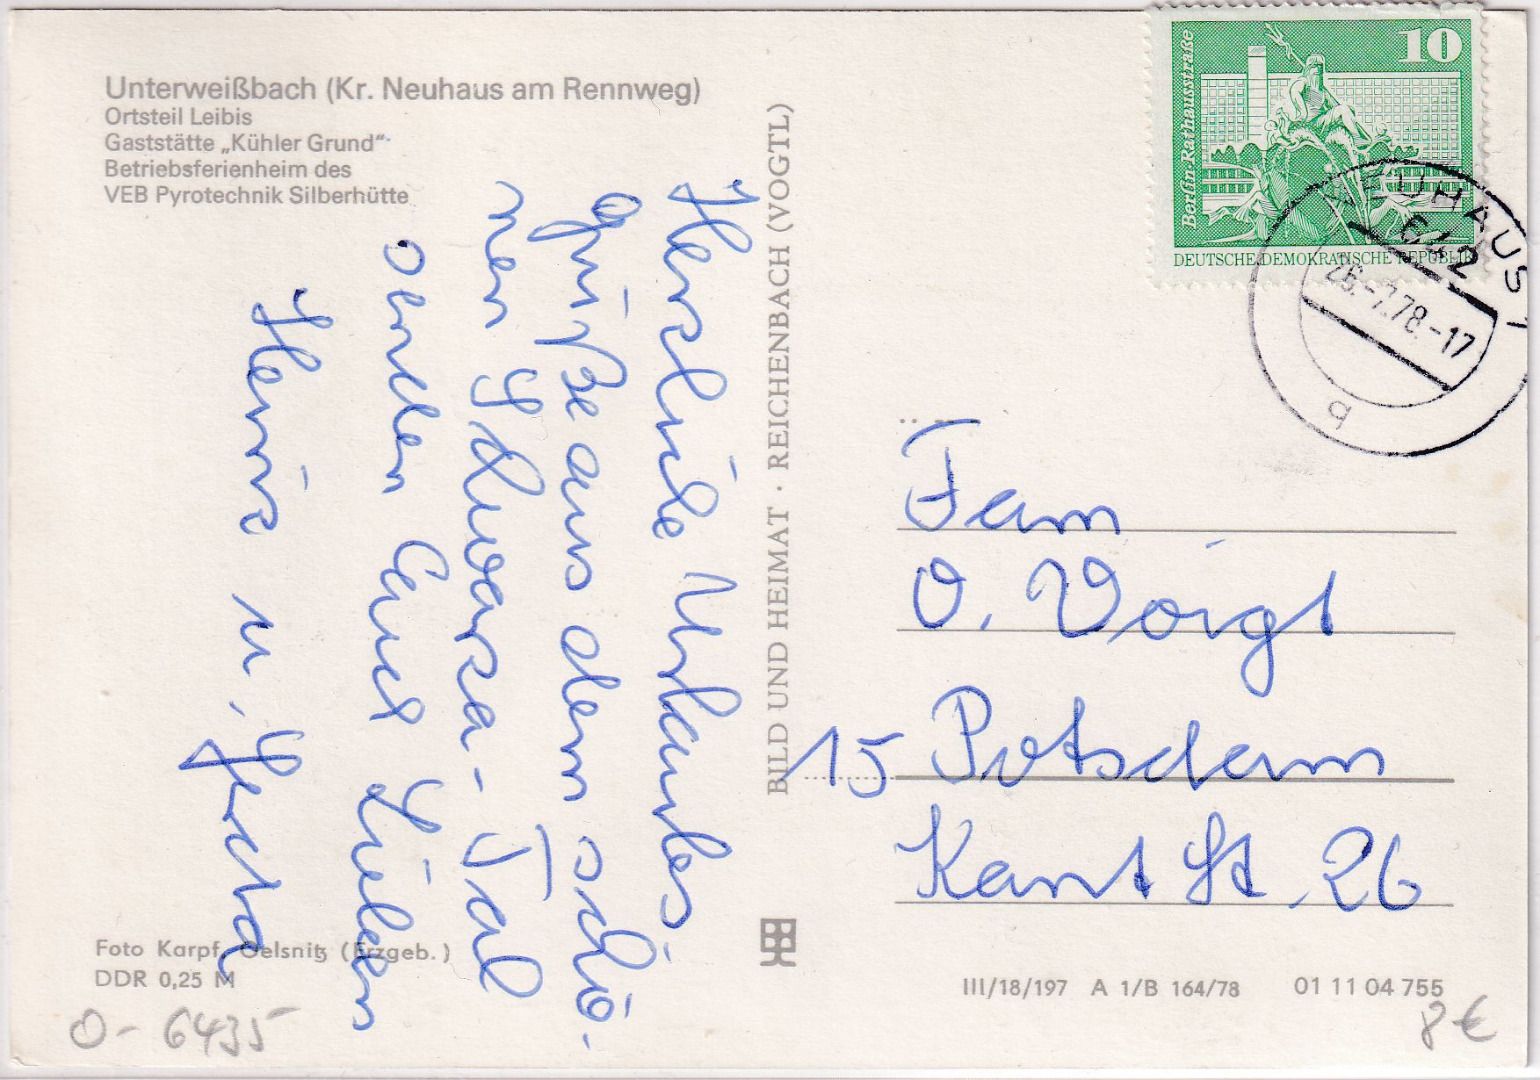 Unterweißbach (Kr. Neuhaus am Rennweg)
Ortsteil Leibis
Gaststätte „Kühler Grund“
Betriebsferienheim des
VEB Pyrotechnik Silberhütte
Herzliche Urlaubs
grüße aus dem schö-
nen Schwarza-Tal
senden Euch
Heinz u. Gerda
Foto Karpf, Oelsnitz (Erzgeb.)
DDR 0,25 M
O-6435
BILD UND HEIMAT · REICHENBACH (VOGTL)
10
Berlin-Rathausstraße
DEUTSCHE DEMOKRATISCHE REPUBLIK
NEUHAUS 1
642
26.-7.78.-17
Fam
O. Voigt
15 Potsdam
Kant St. 26
III/18/197 A 1/B 164/78 01 11 04 755
8 €